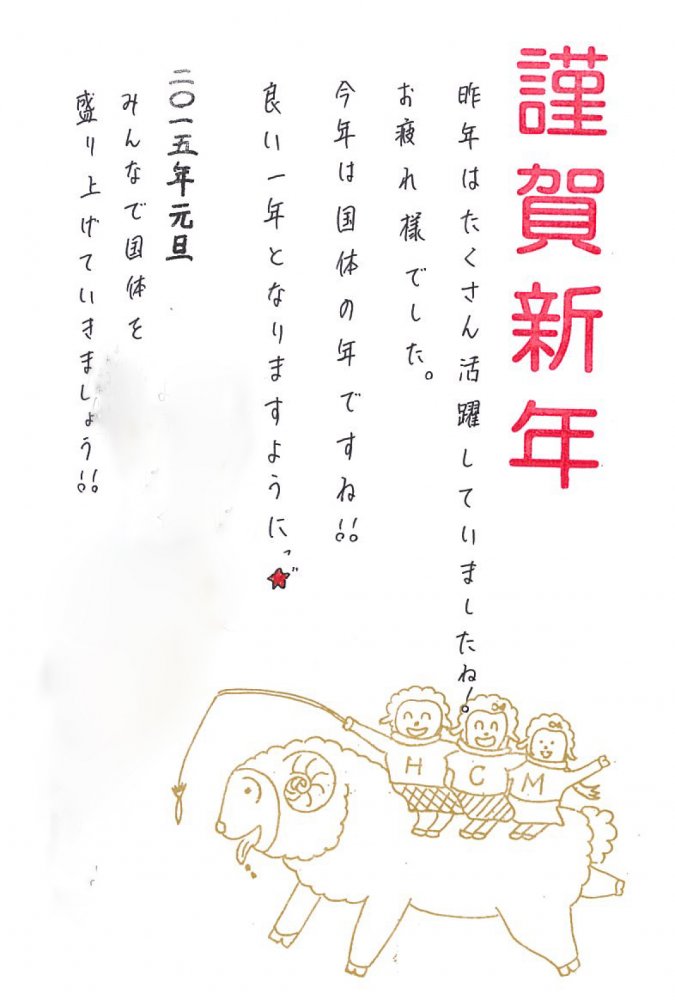 謹賀新年
昨年はたくさん活躍していましたね!。
お疲れ様でした。
今年は国体の年ですね!!
良い一年となりますように
二〇一五年元旦
みんなで国体を
盛り上げていきましょう!!
H C M